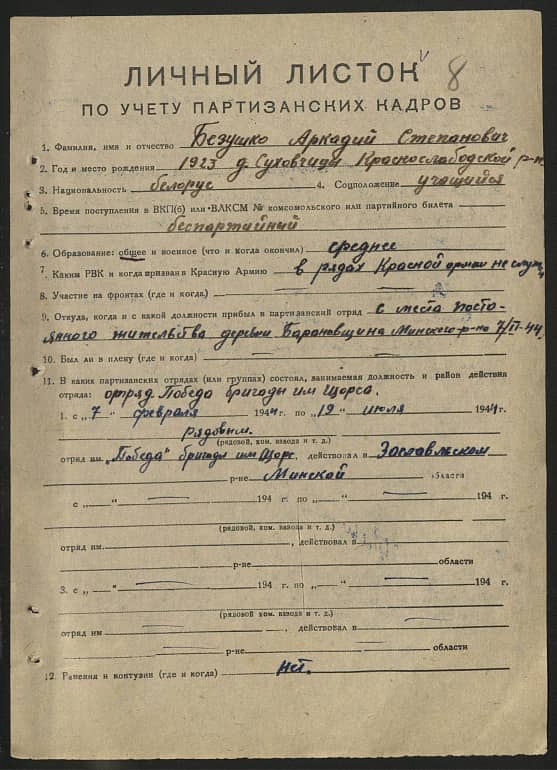 8
ЛИЧНЫЙ ЛИСТОК
ПО УЧЕТУ ПАРТИЗАНСКИХ КАДРОВ
1. Фамилия, имя и отчество Безушко Аркадий Степанович
2. Год и место рождения 1923 д. Суховчицы Краснослабодской р-н
3. Национальность белорус 4. Соцположение учащийся
5. Время поступления в ВКП(б) или ВЛКСМ № комсомольского или партийного билета
беспартийный
6. Образование: общее и военное (что и когда окончил) среднее
7. Каким РВК и когда призван в Красную Армию в рядах Красной армии не служ
8. Участие на фронтах (где и когда)
9. Откуда, когда и с какой должности прибыл в партизанский отряд с места посто-
янного жительства деревни Барановщина Минского р-на 7/II-44
10. Был ли в плену (где и когда)
11. В каких партизанских отрядах (или группах) состоял, занимаемая должность и район действия
отряда: отряд Победа бригады им Щорса.
1. с „7" февраля 1944 г. по „19" июля 1944 г.
Рядовым.
(рядовой, ком. взвода и т. д.)
отряд им. „Победа" бригады им Щорс, действовал в Заславльском
р-не Минской области
с „ — " 194 г. по „ — " 194 г.
(рядовой, ком. взвода и т. д.)
отряд им. , действовал в
р-не области
3. с „ — " 194 г. по „ — " 194 г.
(рядовой, ком. взвода и т. д.)
отряд им , действовал в
р-не области
12. Ранения и контузии (где и когда) нет.